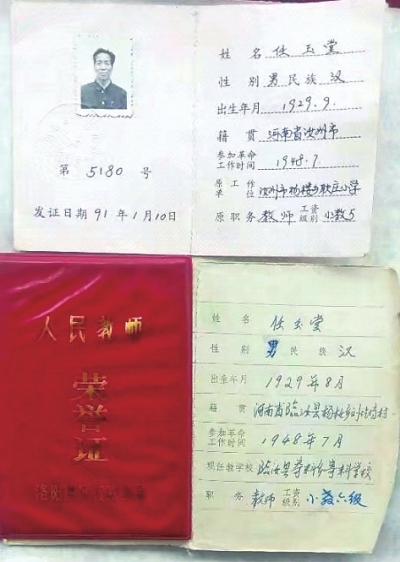 第 5180 号
发证日期 91 年 1 月 10 日
姓 名 任玉堂
性 别 男 民 族 汉
出生年月 1929.9.
籍 贯 河南省汝州市
参加革命工作时间 1948.7
原工作单位 汝州市杨楼乡耿庄小学
原职务 教师 工资级别 小教5
人民教师
荣誉证
姓 名 任玉堂
性 别 男 民 族 汉
出生年月 1929年8月
籍 贯 河南省临汝县杨楼乡
参加革命工作时间 1948年7月
现任教学校 临汝县
职 务 教师 工资级别 小教六级